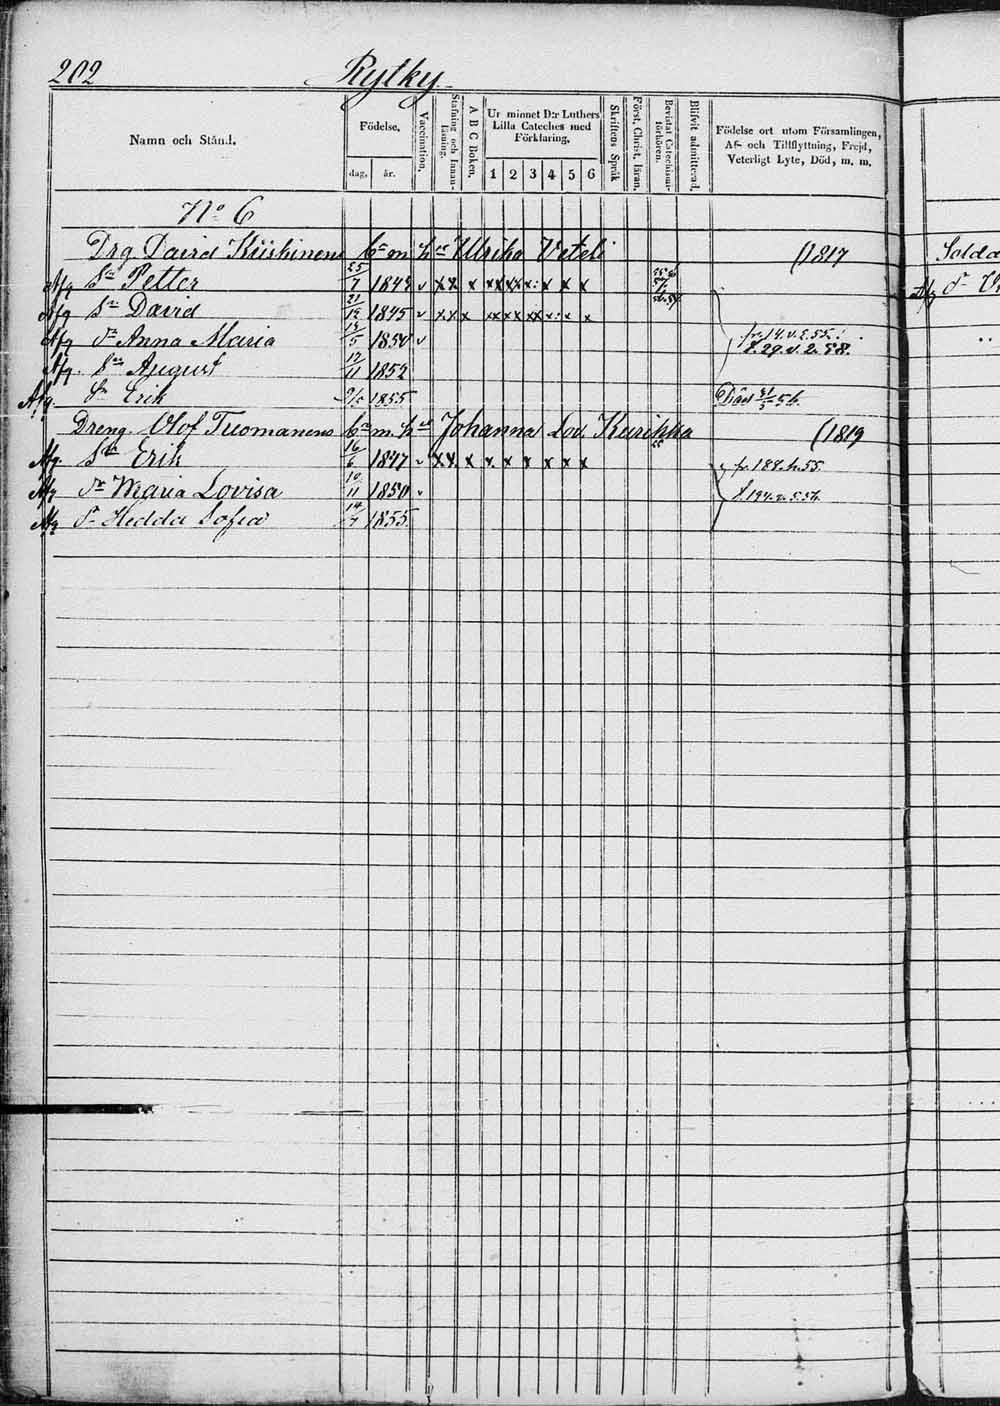 202 Rytky
Namn och Stånd.
Födelse,
dag, år.
Vaccination,
Stafning och Innan-läsning.
A B C Boken.
Ur minnet D:r Luthers Lilla Cateches med Förklaring,
1 2 3 4 5 6
Skriftens Språk
Först. Christ. läran.
Bevistat Catechismi-förhören.
Blifvit admitterad.
Födelse ort utom Församlingen, Af- och Tillflyttning, Frejd, Veterligt Lyte, Död, m. m.
No 6
Drg David Kiiskinens bn m hu Ulrika Veteli (1817 Solda
Afg Sn Petter 25/7 1842 v x x x x x x x x : x x x
Afg Sn David 21/12 1845 v x x x x x x x x x : x x
Afg dr Anna Maria 13/5 1850 v fr. 14. v. 2. 55.
f. 29. v. 2. 58.
Afg. Sn August 12/11 1852
Afg. Sn Erik 1855 Död 31/3 56.
Dreng. Olof Tuomanens bn m. hu Johanna Lov. Kurikka (1819
Afg. Sn Erik 16/6 1847 v x x x x x x x x x fr. 188. h. 55.
Afg dr Maria Lovisa 10/11 1850 v f. 194. v. 5. 56.
Afg dr Hedda Sofia 14/7 1855.